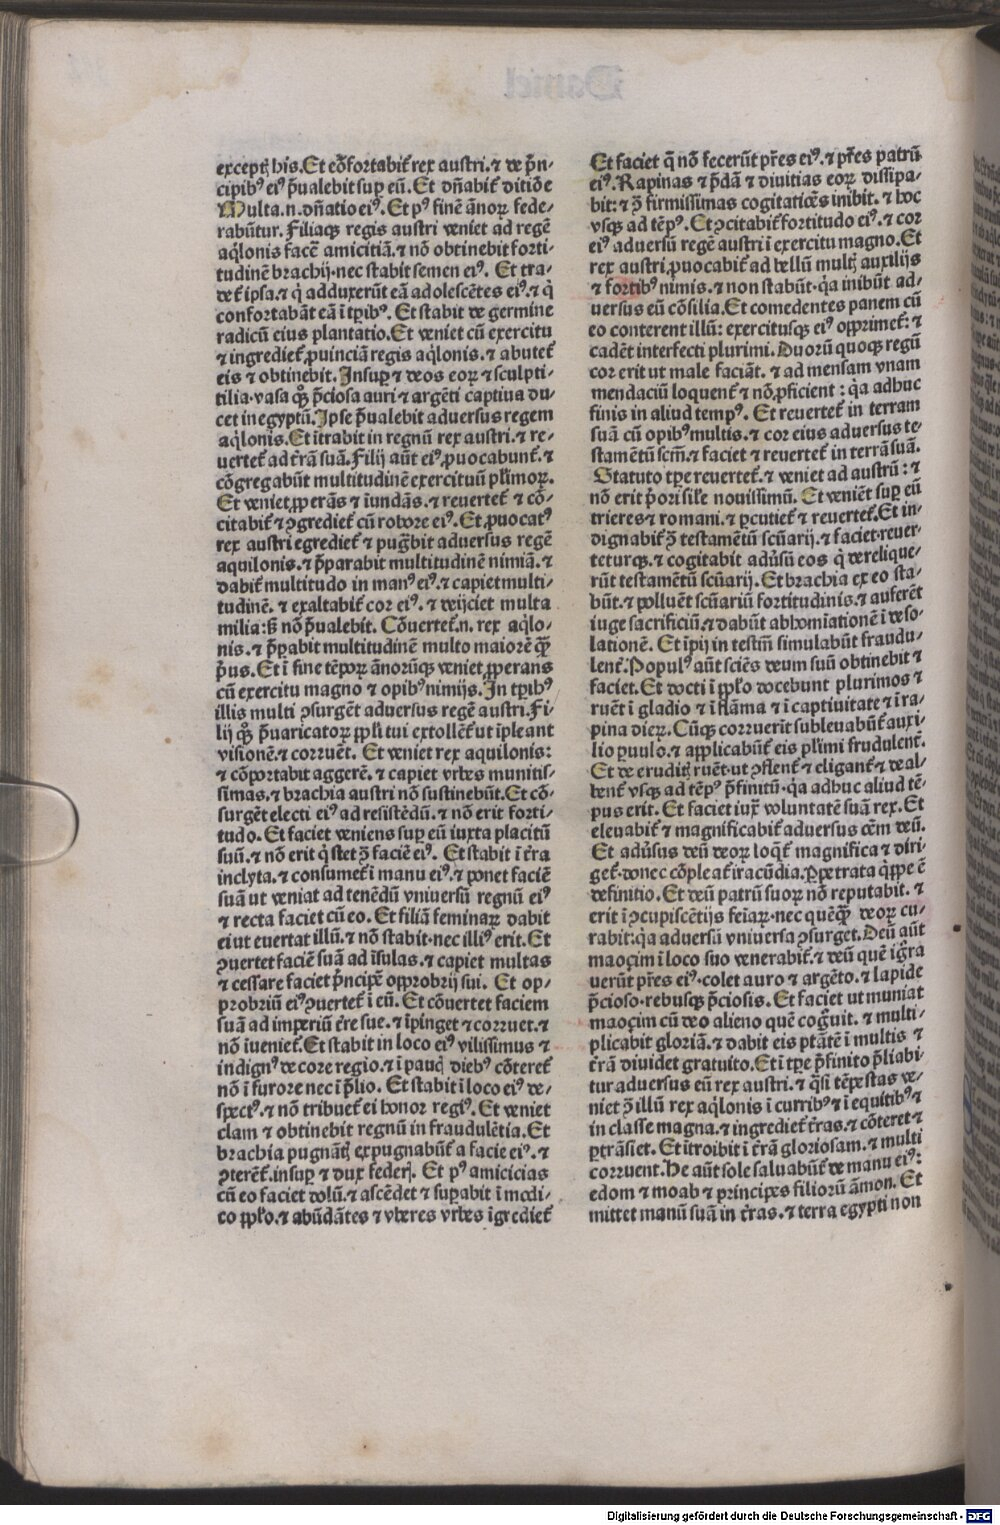 exceptꝭ his. Et cõfortabit̃ rex austri. ⁊ de p̃n-
cipibꝰ eiꝰ p̃ualebit sup eũ. Et dñabit̃ ditiõe
Multa .n. dñatio eiꝰ. Et pꝰ finẽ ãnoꝝ fede-
rabũtur. Filiaqꝫ regis austri veniet ad regẽ
aq̃lonis facẽ amicitiã. ⁊ nõ obtinebit forti-
tudinẽ brachij. nec stabit semen eiꝰ. Et tra-
det̃ ipsa. ⁊ q̇ adduxerũt eã adolescẽtes eiꝰ. ⁊ q̇
confortabãt eã ĩ tp̃ibꝰ. Et stabit de germine
radicũ eius plantatio. Et veniet cũ exercitu
⁊ ingrediet̃ ꝓuinciã regis aq̃lonis. ⁊ abutet̃
eis ⁊ obtinebit. Insup ⁊ deos eoꝝ ⁊ sculpti-
tilia. vasa qꝫ̃ p̃ciosa auri ⁊ argẽti captiua du-
cet in egyptũ. Ipse p̃ualebit aduersus regem
aq̃lonis. Et ĩtrabit in regnũ rex austri. ⁊ re-
uertet̃ ad t̃rã suã. Filij aũt eiꝰ ꝓuocabunt̃. ⁊
cõgregabũt multitudinẽ exercituũ pl̃imoꝝ.
Et veniet ꝓperãs ⁊ ĩundãs. ⁊ reuertet̃ ⁊ cõ-
citabit̃ ⁊ ꝯgrediet̃ cũ robore eiꝰ. Et ꝓuocatꝰ
rex austri egrediet̃ ⁊ pug̃bit aduersus regẽ
aquilonis. ⁊ p̃parabit multitudinẽ nimiã. ⁊
dabit̃ multitudo in manꝰ eiꝰ. ⁊ capiet multi-
tudinẽ. ⁊ exaltabit̃ cor eiꝰ. ⁊ deijciet multa
milia: sꝫ nõ p̃ualebit. Cõuertet̃ .n. rex aq̃lo-
nis. ⁊ p̃pabit multitudinẽ multo maiorẽ qꝫ̃
p̃us. Et ĩ fine tẽpoꝝ ãnorũqꝫ veniet ꝓperans
cũ exercitu magno ⁊ opibꝰ nimijs. In tp̃ibꝰ
illis multi ꝯsurgẽt aduersus regẽ austri. Fi-
lij qꝫ̃ p̃uaricatoꝝ ppl̃i tui extollẽt̃ ut ĩpleant
visionẽ. ⁊ corruẽt. Et veniet rex aquilonis:
⁊ cõportabit aggerẽ. ⁊ capiet vrbes munitis-
simas. ⁊ brachia austri nõ sustinebũt. Et cõ-
surgẽt electi eiꝰ ad resistẽdũ. ⁊ nõ erit forti-
tudo. Et faciet veniens sup eũ iuxta placitũ
suũ. ⁊ nõ erit q̇ stet ꝯ̃ faciẽ eiꝰ. Et stabit ĩ t̃ra
inclyta. ⁊ consumet̃ ĩ manu eiꝰ. ⁊ ponet faciẽ
suã ut veniat ad tenẽdũ vniuersũ regnũ eiꝰ
⁊ recta faciet cũ eo. Et filiã feminaꝝ dabit
ei ut euertat illũ. ⁊ nõ stabit. nec illiꝰ erit. Et
ꝯuertet faciẽ suã ad ĩsulas. ⁊ capiet multas
⁊ cessare faciet p̃ncipẽ opprobrij sui. Et op-
probriũ eiꝰ ꝯuertet̃ ĩ eũ. Et cõuertet faciem
suã ad imperiũ t̃re sue. ⁊ ĩpinget ⁊ corruet. ⁊
nõ ĩueniet̃. Et stabit in loco eiꝰ vilissimus ⁊
indignꝰ decore regio. ⁊ ĩ paucꝭ diebꝰ cõteret̃
nõ ĩ furore nec ĩ p̃lio. Et stabit ĩ loco eiꝰ de-
spectꝰ. ⁊ nõ tribuet̃ ei honor regiꝰ. Et veniet
clam ⁊ obtinebit regnũ in fraudulẽtia. Et
brachia pugnãtꝭ expugnabũt̃ a facie eiꝰ. ⁊
ꝯterẽt̃. insup ⁊ dux federꝭ. Et pꝰ amicicias
cũ eo faciet dolũ. ⁊ ascẽdet ⁊ supabit ĩ modi-
co pp̃lo. ⁊ abũdãtes ⁊ vberes vrbes ĩgrediet̃
Et faciet q̃ nõ fecerũt p̃res eiꝰ. ⁊ p̃res patrũ
eiꝰ. Rapinas ⁊ p̃dã ⁊ diuitias eoꝝ dissipa-
bit: ⁊ ꝯ̃ firmissimas cogitatiões inibit. ⁊ hoc
vsqꝫ ad tẽpꝰ. Et ꝯcitabit̃ fortitudo eiꝰ. ⁊ cor
eiꝰ aduersũ regẽ austri ĩ exercitu magno. Et
rex austri ꝓuocabit̃ ad bellũ multꝭ auxilijs
⁊ fortibꝰ nimis. ⁊ non stabũt. q̇a inibũt ad-
uersus eũ cõsilia. Et comedentes panem cũ
eo conterent illũ: exercitusqꝫ eiꝰ opprimet̃: ⁊
cadẽt interfecti plurimi. Duorũ quoqꝫ regũ
cor erit ut male faciãt. ⁊ ad mensam vnam
mendaciũ loquent̃ ⁊ nõ ꝓficient: q̇a adhuc
finis in aliud tempꝰ. Et reuertet̃ in terram
suã cũ opibꝰ multis. ⁊ cor eius aduersus te-
stamẽtũ scm̃. ⁊ faciet ⁊ reuertet̃ in terrã suã.
Statuto tp̃e reuertet̃. ⁊ veniet ad austrũ: ⁊
nõ erit p̃ori sil̃e nouissimũ. Et veniẽt sup eũ
trieres ⁊ romani. ⁊ pcutiet̃ ⁊ reuertet̃. Et in-
dignabit̃ ꝯ̃ testamẽtũ sc̃uarij. ⁊ faciet. reuer-
teturqꝫ. ⁊ cogitabit adũsũ eos q̇ derelique-
rũt testamẽtũ sc̃uarij. Et brachia ex eo sta-
bũt. ⁊ polluẽt sc̃uariũ fortitudinis. ⁊ auferẽt
iuge sacrificiũ. ⁊ dabũt abhomĩationẽ ĩ deso-
lationẽ. Et ĩpij in testm̃ simulabũt fraudu-
lent̃. Populꝰ aũt sciẽs deum suũ obtinebit ⁊
faciet. Et docti ĩ pp̃lo docebunt plurimos ⁊
ruẽt ĩ gladio ⁊ ĩ flãma ⁊ ĩ captiuitate ⁊ ĩ ra-
pina dieꝝ. Cũqꝫ corruerĩt subleuabũt̃ auxi-
lio puulo. ⁊ applicabũt̃ eis pl̃imi frudulent̃.
Et de eruditꝭ ruẽt. ut ꝯflent̃ ⁊ eligant̃ ⁊ deal-
bent̃ vsqꝫ ad tẽpꝰ p̃finitũ. q̇a adhuc aliud tẽ-
pus erit. Et faciet iux̃ voluntatẽ suã rex. Et
eleuabit̃ ⁊ magnificabit̃ aduersus oẽm deũ.
Et adũsus deũ deoꝝ loq̃t̃ magnifica ⁊ diri-
get̃. donec cõpleat̃ iracũdia. Ppetrata q̇ppe ẽ
definitio. Et deũ patrũ suoꝝ nõ reputabit. ⁊
erit ĩ ꝯcupiscẽtijs feĩaꝝ. nec quẽqꝫ̃ deoꝝ cu-
rabit: q̇a aduersũ vniuersa ꝯsurget. Deũ aũt
maoçim ĩ loco suo venerabit̃. ⁊ deũ quẽ ig̃ra
uerũt p̃res eiꝰ. colet auro ⁊ argẽto. ⁊ lapide
p̃cioso. rebusqꝫ p̃ciosis. Et faciet ut muniat
maoçim cũ deo alieno quẽ cog̃uit. ⁊ multi-
plicabit gloriã. ⁊ dabit eis ptãtẽ ĩ multis ⁊
t̃rã diuidet gratuito. Et ĩ tp̃e p̃finito p̃liabi-
tur aduersus eũ rex austri. ⁊ q̃si tẽpestas ve-
niet ꝯ̃ illũ rex aq̃lonis ĩ curribꝰ ⁊ ĩ equitibꝰ ⁊
in classe magna. ⁊ ingrediet̃ t̃ras. ⁊ cõteret ⁊
ptrãsiet. Et ĩtroibit ĩ t̃rã gloriosam. ⁊ multi
corruent. He aũt sole saluabũt̃ de manu eiꝰ:
edom ⁊ moab ⁊ principes filiorũ ãmon. Et
mittet manũ suã in t̃ras. ⁊ terra egypti non
Digitalisierung gefördert durch die Deutsche Forschungsgemeinschaft - DFG